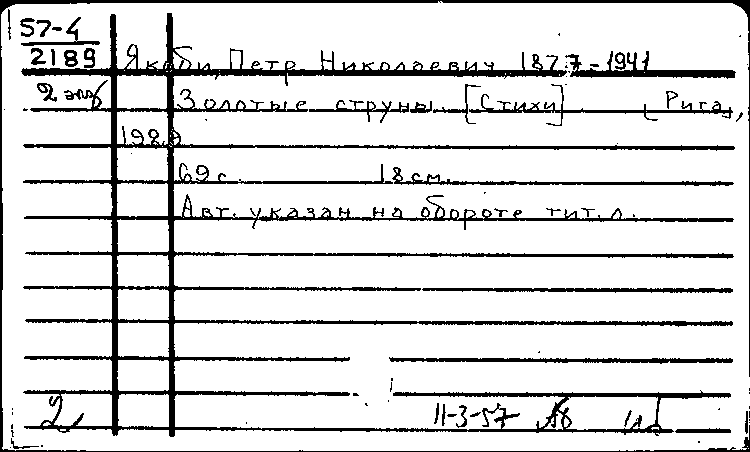 57-4
2189
Якоби, Петр Николаевич 1877-1941
2 экз
Золотые струны. [Стихи] [Рига],
69 с. 18 см.
Авт. указан на обороте тит. л.
2
11-3-57